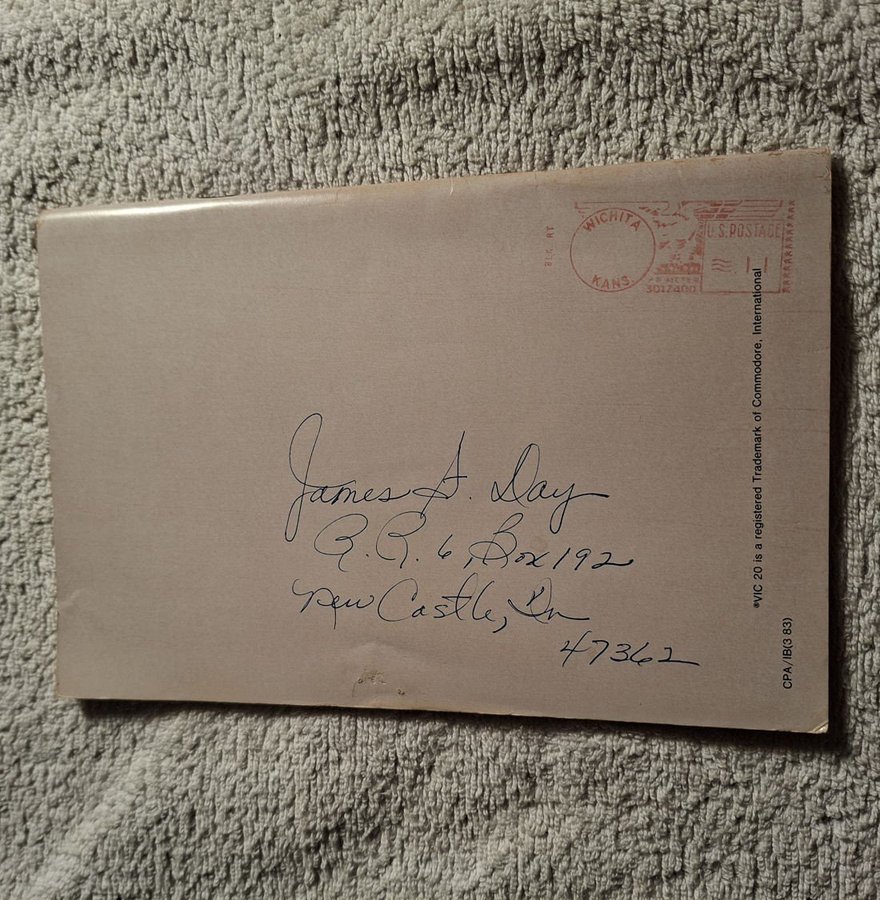 WICHITA
KANS.
U.S. POSTAGE
BLK RT
James A. Day
R.R. 6, Box 192
New Castle, In
47362
®VIC 20 is a registered Trademark of Commodore, International
CPA/IB(3 83)